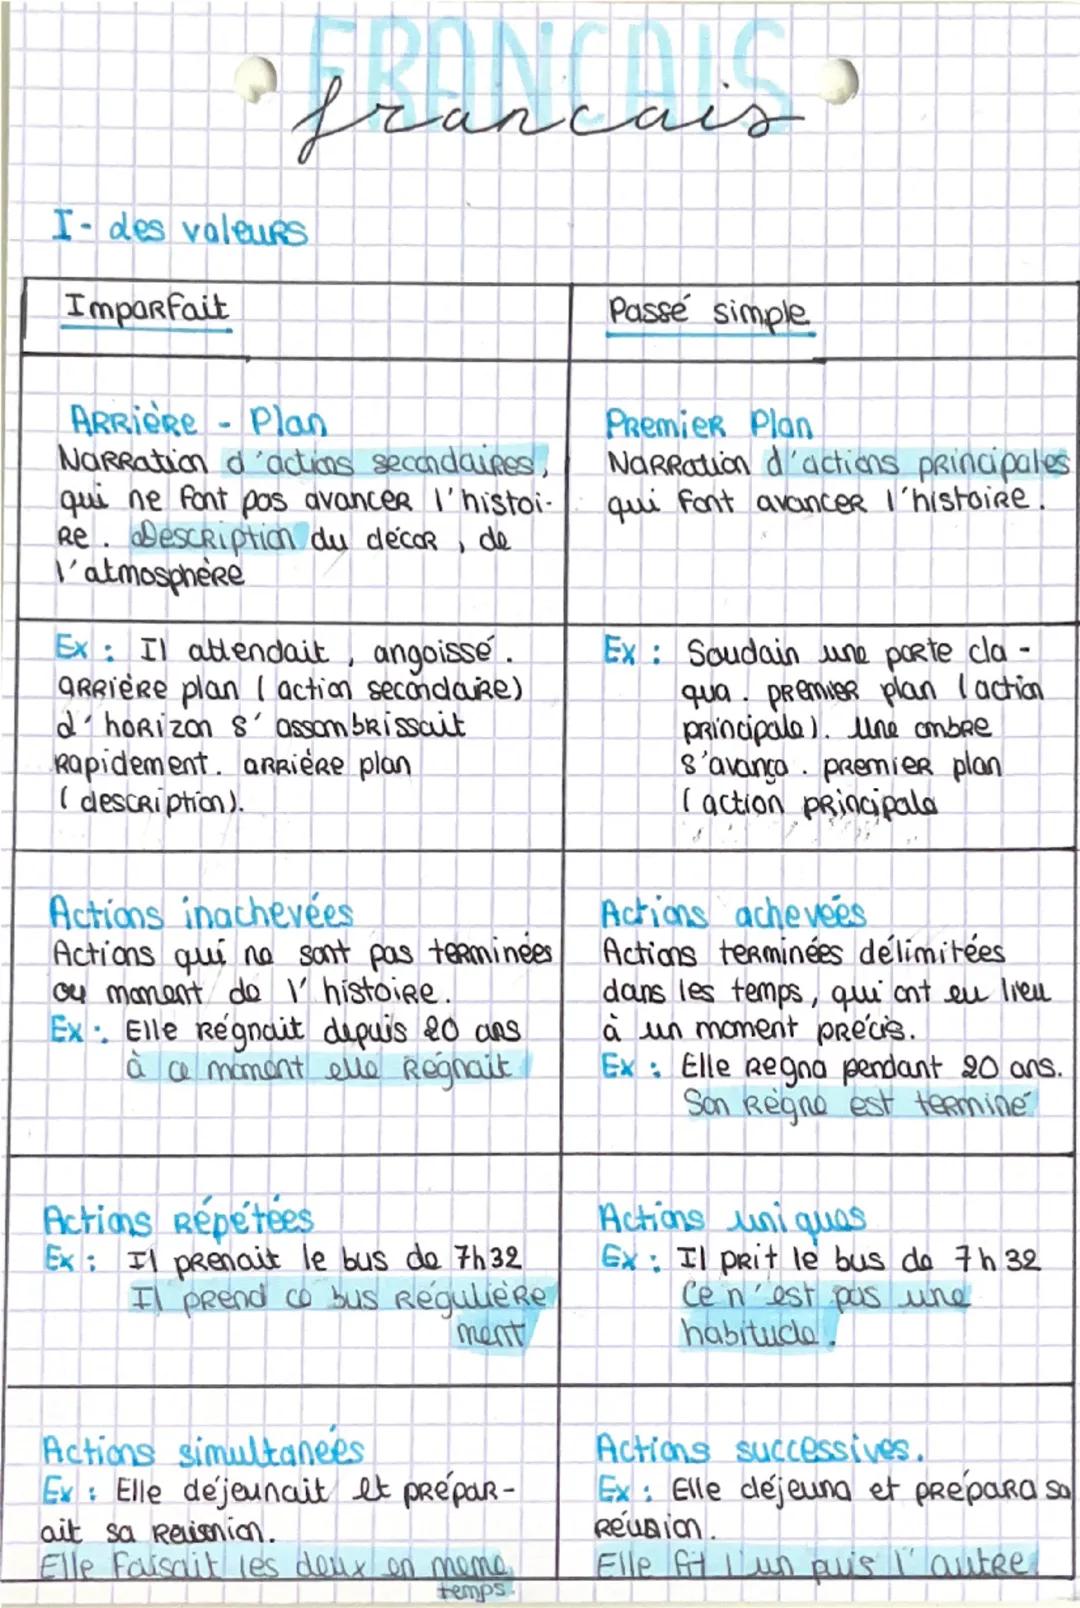 FRANCAIS
francais
I - des valeurs
Imparfait
Passé simple
Arrière - Plan
Narration d'actions secondaires,
qui ne font pas avancer l'histoi-
re. Description du décor, de
l'atmosphère
Premier Plan
Narration d'actions principales
qui font avancer l'histoire.
Ex : Il attendait, angoissé.
arrière plan (action secondaire)
L'horizon s'assombrissait
Rapidement. arrière plan
(description).
Ex : Soudain une porte cla-
qua. premier plan (action
principale). Une ombre
s'avança. premier plan
(action principale
Actions inachevées
Actions qui ne sont pas terminées
au moment de l'histoire.
Ex : Elle régnait depuis 20 ans
à ce moment elle régnait
Actions achevées
Actions terminées délimitées
dans les temps, qui ont eu lieu
à un moment précis.
Ex : Elle regna pendant 20 ans.
Son règne est terminé
Actions répétées
Ex : Il prenait le bus de 7h32
Il prend ce bus régulière
ment
Actions uniques
Ex : Il prit le bus de 7h32
Ce n'est pas une
habitude.
Actions simultaneés
Ex : Elle déjeunait et prépar-
ait sa réunion.
Elle faisait les deux en meme
temps.
Actions successives.
Ex : Elle déjeuna et prépara sa
réunion.
Elle fit l'un puis l'autre.